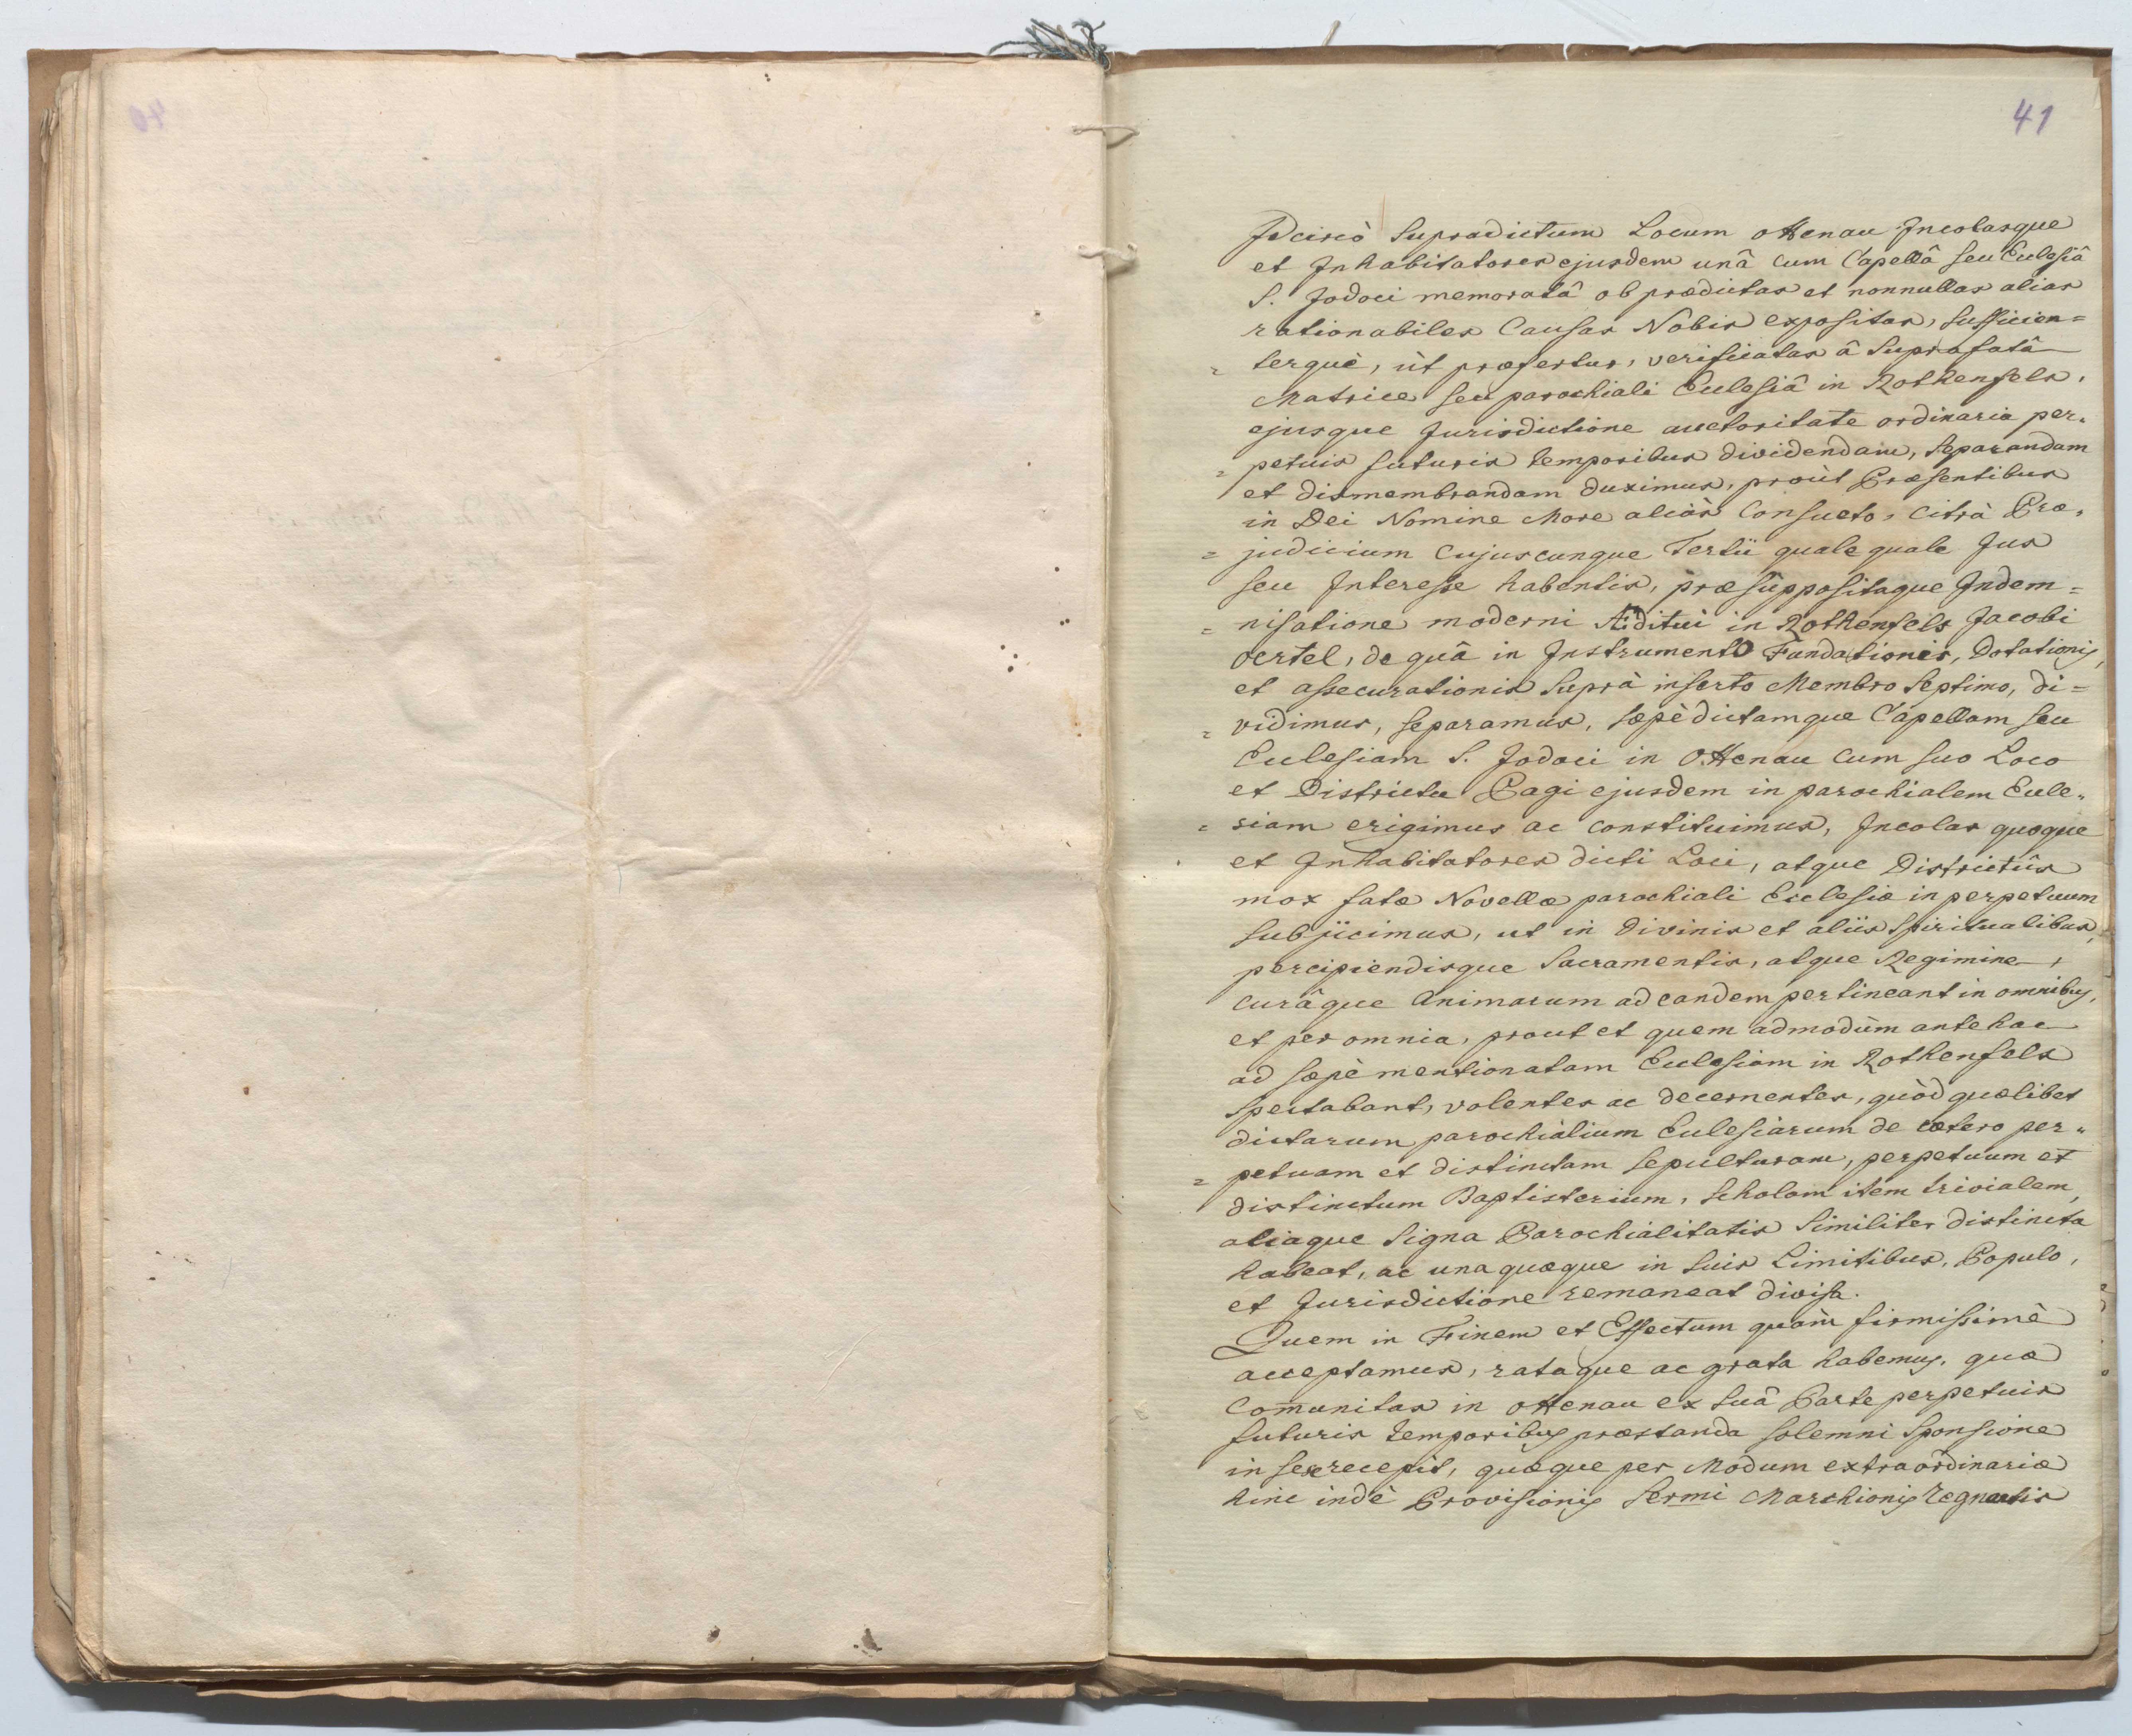 41
Idcircò Supradictum Locum Ottenau Incolasque
et Inhabitatores ejusdem unâ cum Capellâ seu Ecclesiâ
S. Jodoci memoratâ ob prædictas et nonnullas alias
rationabiles Causas Nobis expositas, sufficien=
=terquè, ùt præfertur, verificatas â Suprafatâ
Matrice seu parochiali Ecclesiâ in Rothenfels,
ejusque Jurisdictione auctoritate ordinaria per=
=petuis futuris temporibus dividendam, separandam
et dismembrandam duximus, proùt Præsentibus
in Dei Nomine More aliàs Consueto, Citrà Præ=
=judicium Cujuscunque Tertii quale quale Jus
seu Interesse habentis, præsuppositaque Indem=
=nisatione moderni Æditui in Rothenfels Jacobi
Oertel, de quâ in Instrumento Fundationis, Dotationis,
et assecurationis Suprà inserto Membro Septimo, di=
=vidimus, separamus, sæpèdictamque Capellam seu
Ecclesiam S. Jodoci in Ottenau Cum suo Loco
et Districtu Pagi ejusdem in parochialem Eccle=
=siam erigimus ac constituimus, Incolas quoque
et Inhabitatores dicti Loci, atque Districtûs
mox fatæ Novellæ parochiali Ecclesiæ in perpetuum
subjicimus, ut in divinis et aliis Spiritualibus,
percipiendisque Sacramentis, atque Regimine,
curâque Animarum ad eandem pertineant in omnibus,
et per omnia, prout et quem admodùm antehac
ad sæpè mentionatam Ecclesiam in Rothenfels
spectabant, volentes ac decernentes, quòd quælibet
dictarum parochialium Ecclesiarum de cætero per=
=petuam et distinctam sepulturam, perpetuum et
distinctum Baptisterium, Scholam item trivialem,
aliaque Signa Parochialitatis Similiter distincta
habeat, ac unaquæque in suis Limitibus, Populo,
et Jurisdictione remaneat divisa.
Quem in Finem et Effectum quàm firmissimè
acceptamus, rataque ac grata habemus, quæ
Com̄unitas in Ottenau ex suâ Parte perpetuis
futuris temporibus præstanda solemni Sponsione
in se recepit, quæque per Modum extraordinariæ
hinc indè Provisionis Sermi Marchionis regnantis